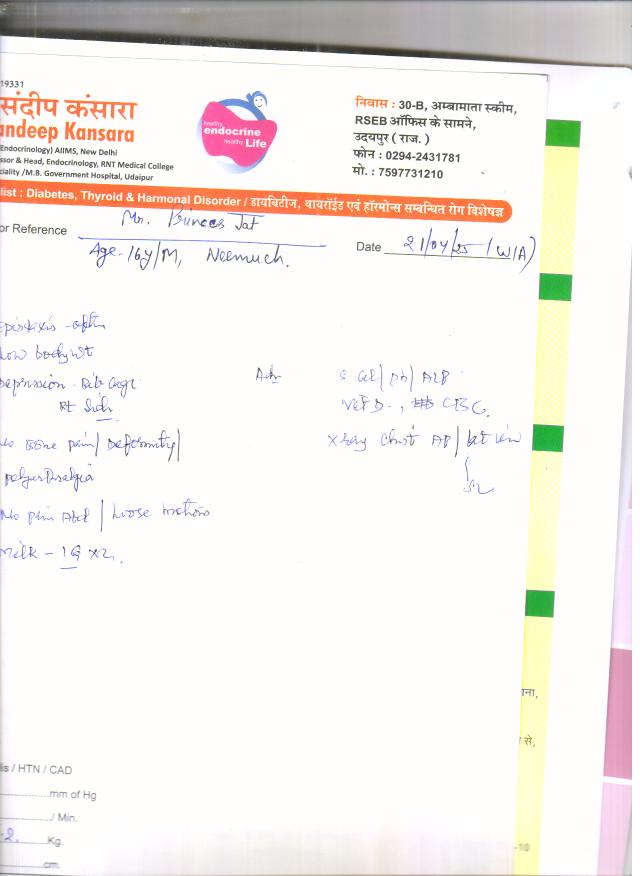 19331
संदीप कंसारा
andeep Kansara
Endocrinology) AIIMS, New Delhi
ssor & Head, Endocrinology, RNT Medical College
ciality /M.B. Government Hospital, Udaipur
healthy
endocrine
healthy Life
निवास : 30-B, अम्बामाता स्कीम,
RSEB ऑफिस के सामने,
उदयपुर ( राज. )
फोन : 0294-2431781
मो. : 7597731210
list : Diabetes, Thyroid & Harmonal Disorder / डायबिटीज, थायरॉईड एवं हॉरमोन्स सम्बन्धित रोग विशेषज्ञ
or Reference Mr. Princes Jat
Age-16y/M, Neemuch.
Date 21/04/25 (W/A)
epistaxis -often
Low body wt
Depression - Rib cage
Rt Side
No Bone pain/ Deformity/
polyarthralgia
No pain Abd / Loose motions
Milk - 1G x2.
Adv
S Cal/ ph/ ALP
Vit D., CBC.
Xray Chest AP/ Lat view
is / HTN / CAD
mm of Hg
/ Min.
2. Kg.
cm.
ाना,
से,
-10